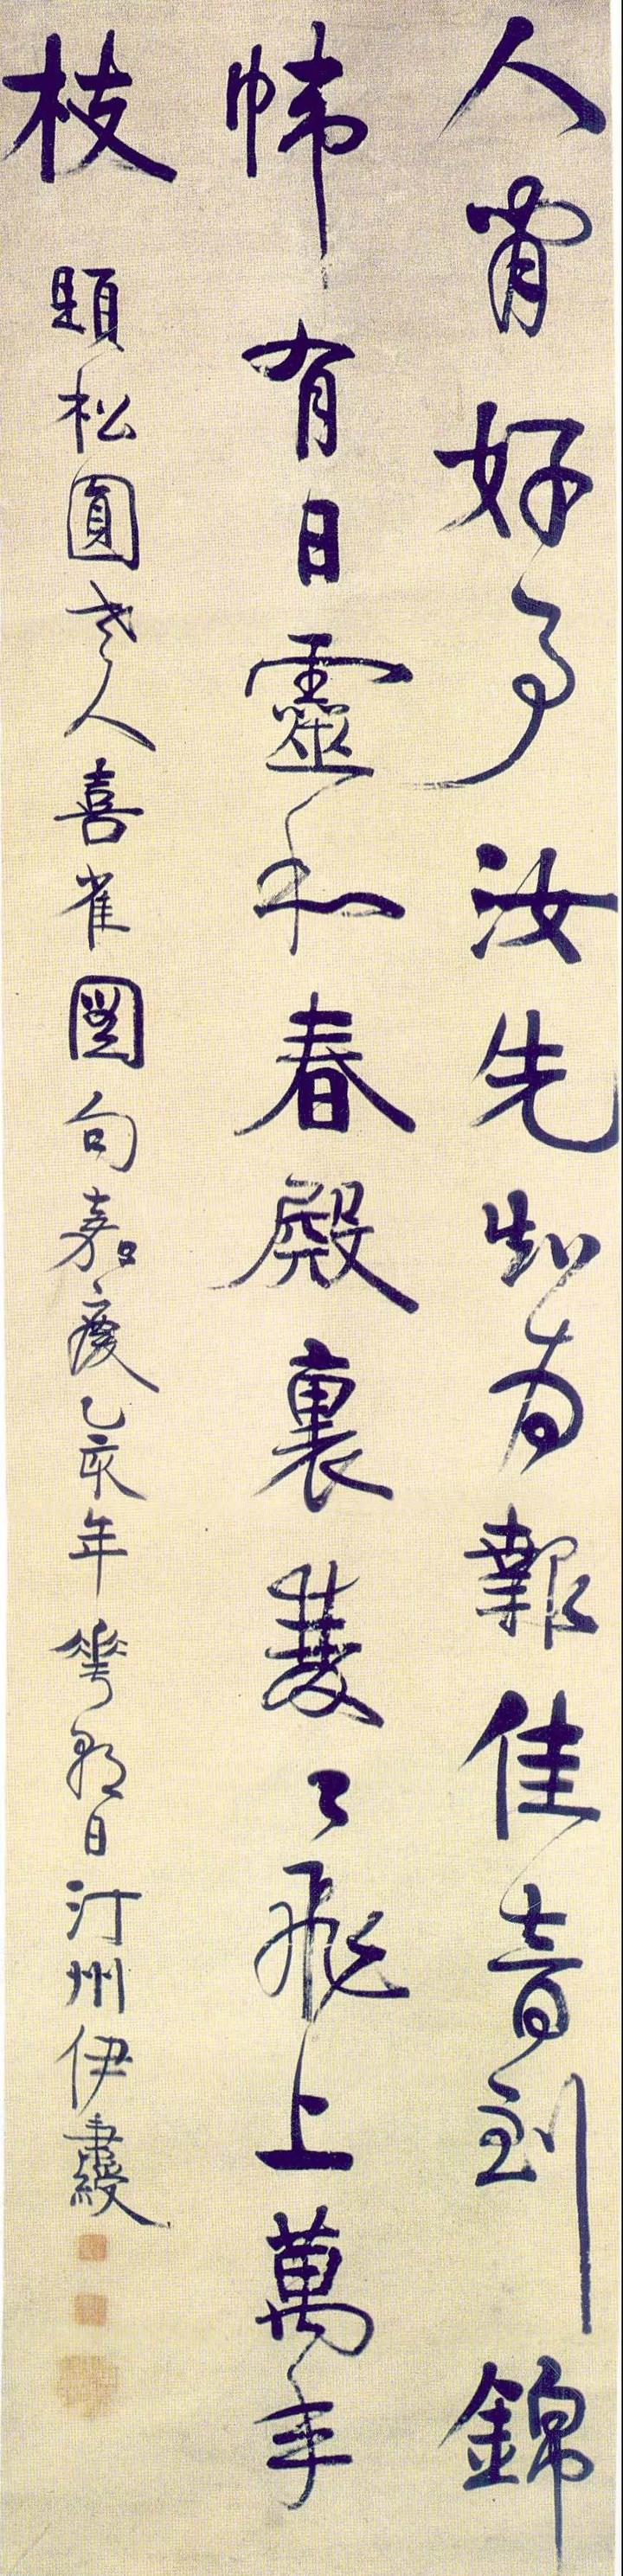 人閒好事汝先知為報佳音到錦
幃有日靈和春殿裏雙〻飛上萬年
枝 題松圓老人喜雀圖句嘉慶乙亥年華朝日汀州伊秉綬